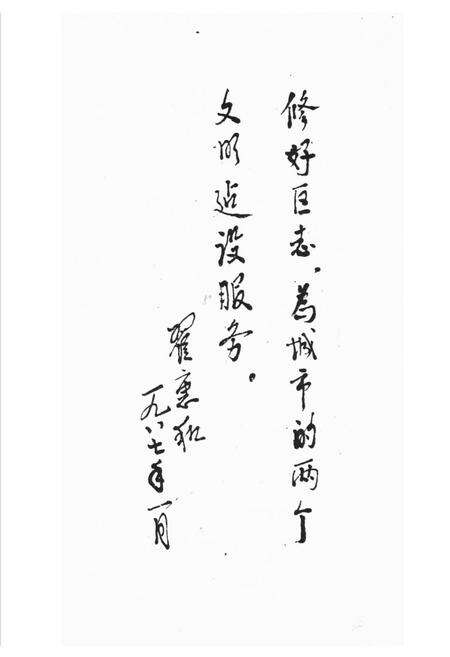 修好区志，為城市的两个
文明建设服务。
翟惠
一九八七年一月